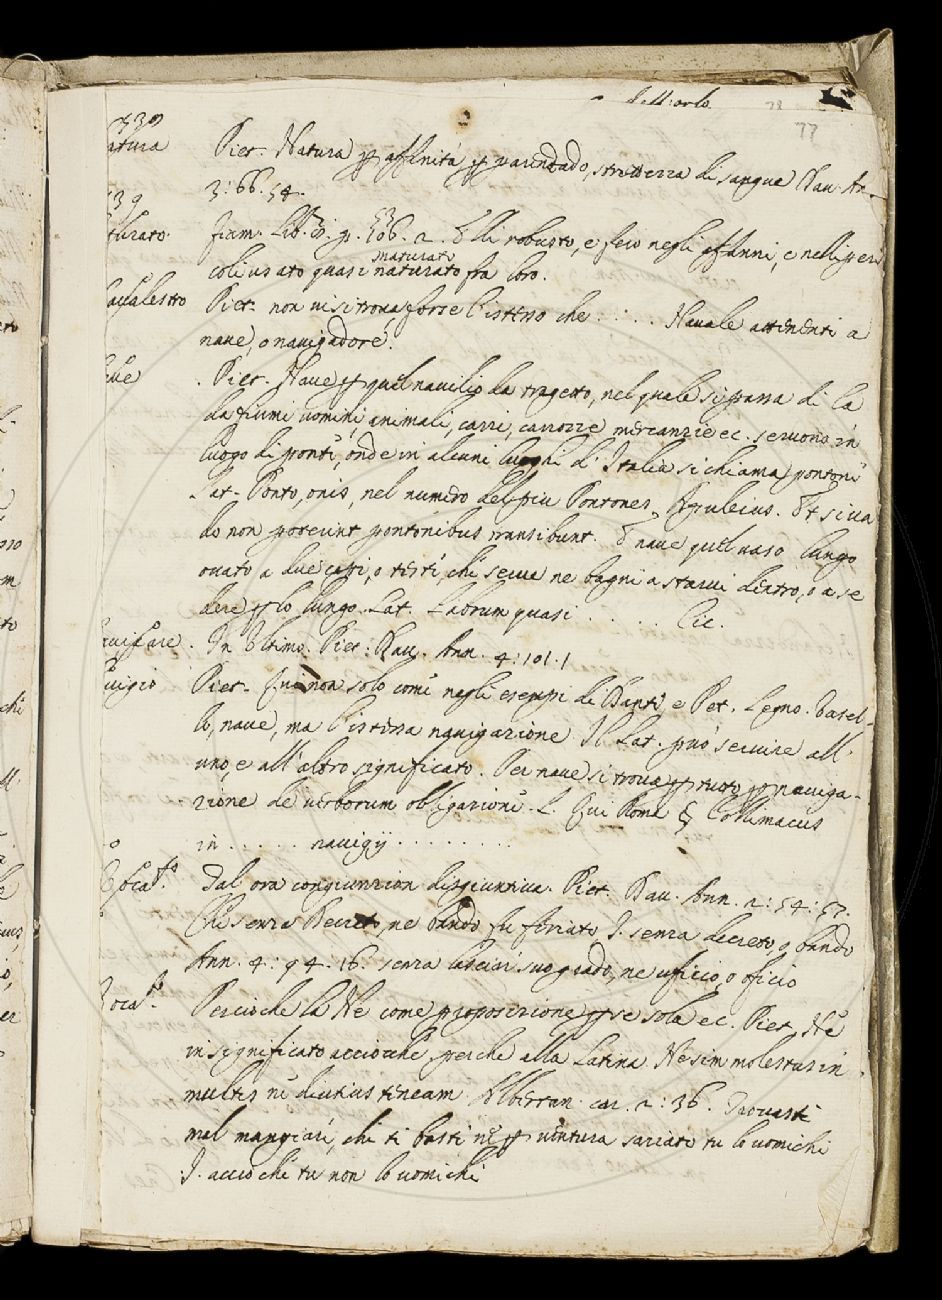 dell'orlo
78
77
339
atura Piet. Natura p affinità p parentado, strettezza di sangue Dav. An.
3: 66. 54.
39
turato. Fiam. Lib. 3. p. 106. 2. Elli robusto, e fero negli affanni, e nelli peri
53
maturato
coli usato quasi naturato fra loro.
Piet. non vi si trova forse l'istesso che . . . . Navale attenenti a
nave, o navigadore.
ave . Piet. Nave p quel navilio da tragetto, nel quale si passa di la
da fiumi uomini, animali, carri, carozze mercanzie ec. servono in
luogo di ponti, onde in alcuni luoghi d'Italia si chiama pontoni
Lat. Ponto, onis, nel numero del piu Pontones Apuleius. Et si va
do non poterunt pontonibus transibunt. E nave quel vaso lungo
ovato a due capi, o testi, che serve ne bagni a starvi dentro, o a se
dere p lo lungo. Lat. Labrum quasi . . . . . Cic.
avicare. In Ultimo. Piet: Dav. Ann. 4: 101. 1
avigio Piet. Qui non solo come negli esempi di Dante e Pet. Legno. Vasel-
lo, nave, ma l'istessa navigazione. Il Lat. può servire all'
uno, e all'altro significato. Per nave si trova p tutto po naviga-
zione de verborum obligazione. L. Qui Roma § Callimacus
in . . . . . navigij . . . . . . . . .
o
Dal ora congiunzion disgiuntiva. Piet. Dav. Ann. 2: 54: 57.
Chi senza Decreto, ne bando fu feriato I. senza decreto, o bando
Ann. 4: 94. 16. senza lasciar suo grado, ne uficio, o oficio
Percioche la Ne come proposizione p se sola ec. Piet. Ne
in significato accioche, perche alla Latina Ne sim molestus in
multis ne diutius teneam. Alberran. car. 2: 36. Trovasti
mel mangiane, che ti basti ne p ventura saziato tu lo vomichi
I. accio che tu non lo vomichi